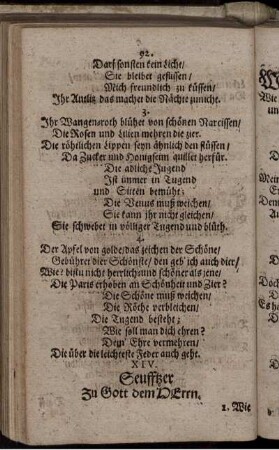 92.
Darf sonsten kein Licht/
Sie bleibet geflissen/
Mich freundlich zu küssen/
Ihr Antlitz das machet die Nächte zunicht.
3.
Ihr Wangenroth blühet von schönen Narcissen/
Die Rosen und Lilien mehren die zier.
Die röhtlichen Lippen seyn ähnlich den flüssen/
Da Zucker und Honigseim quillet herfür.
Die adliche Jugend
Ist immer in Tugend
und Sitten bemüht.
Die Venus muß weichen/
Sie kann ihr nicht gleichen/
Sie schwebet in völliger Tugend und blüth.
4.
Der Apfel von golde/das zeichen der Schöne/
Gebühret der Schönste/ den geb' ich auch dier/
Wie? bistu nicht herrlich und schöner als jene/
Die Paris erhoben an Schönheit und Zier?
Die Schöne muß weichen/
Die Röthe verbleichen/
Die Tugend besteht;
Wie soll man dich ehren?
Dein' Ehre vermehren/
Die über die leichteste Feder auch geht.
XIV.
Seufftzer
Zu Gott dem HErrn.
1. Wie